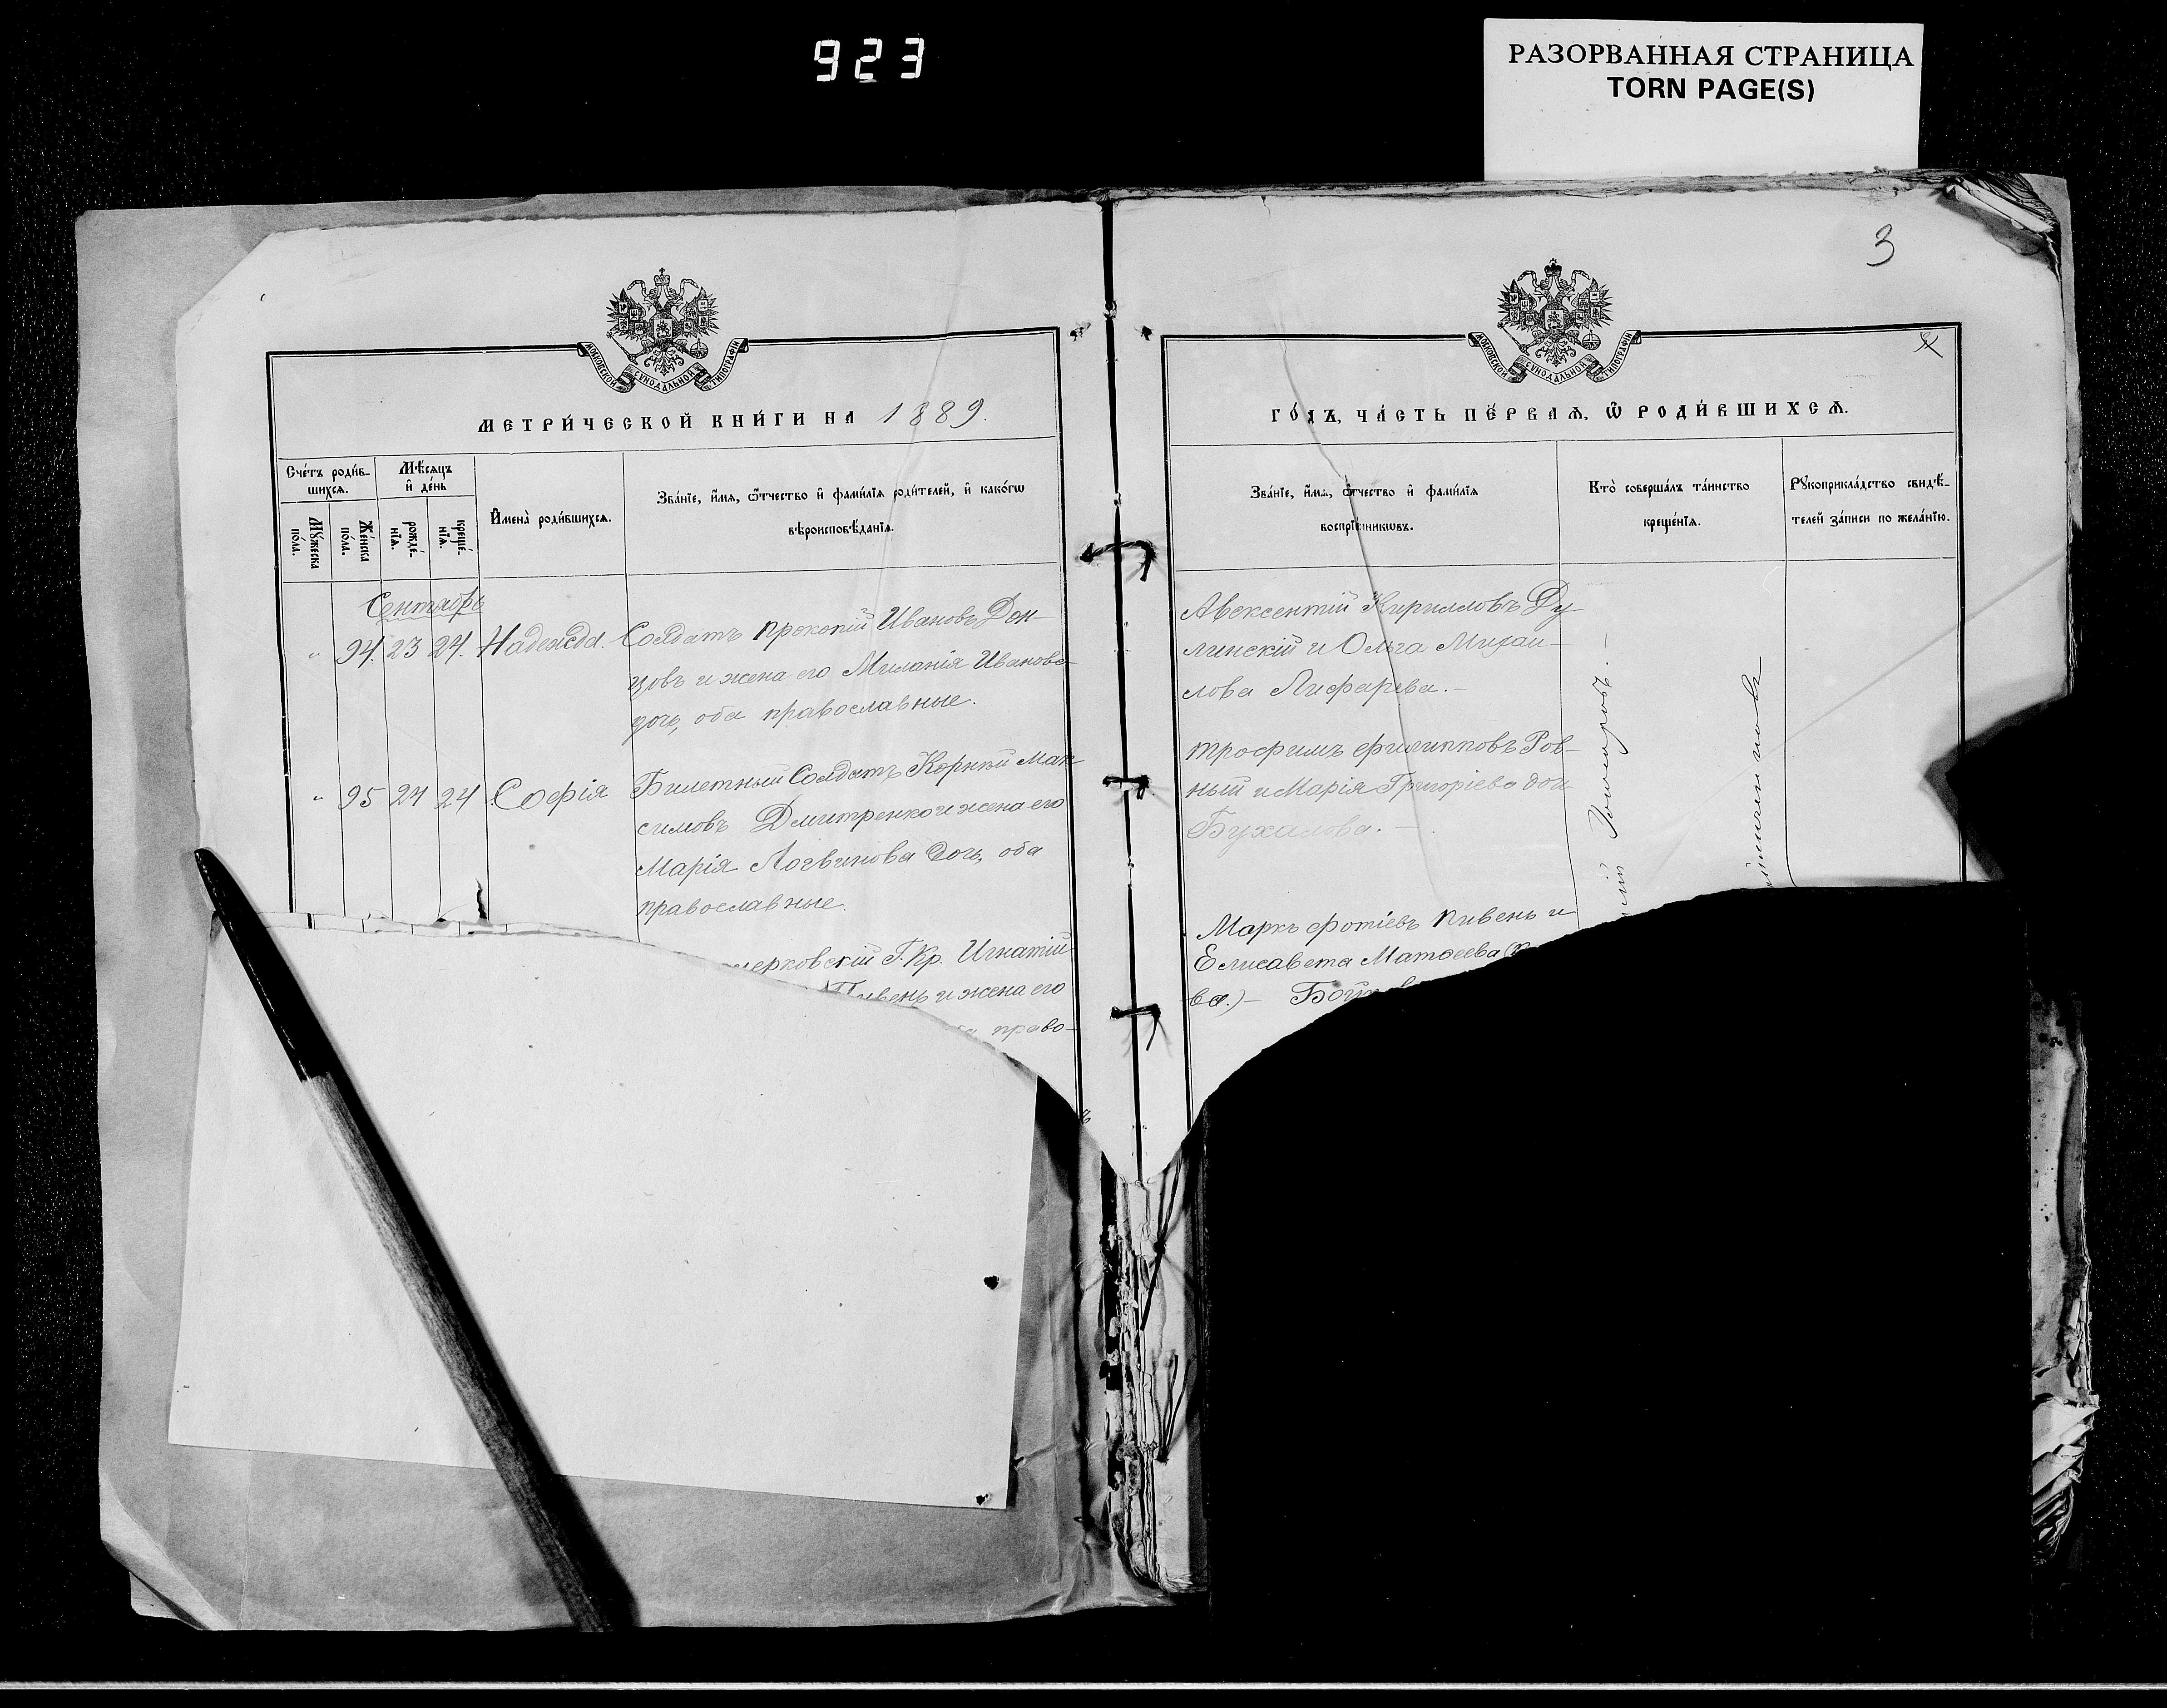 923
РАЗОРВАННАЯ СТРАНИЦА
TORN PAGE(S)
3
МОСКОВСКОЙ СУНОДАЛЬНОЙ ТИПОГРАФІИ
МЕТРИ́ЧЕСКОЙ КНИ́ГИ НА 1889.
Сче́тъ роди́в-
шихсѧ.
Мѣ́сѧцъ
и҆ де́нь
Мꙋ́жеска
по́ла.
Же́нска
по́ла.
рожде́-
нїѧ.
креще́-
нїѧ.
И҆мена̀ роди́вшихсѧ.
Зва́нїе, и҆́мѧ, ѻ҆́тчество и҆ фами́лїѧ роди́телей, и҆ како́гѡ
вѣроисповѣ́данїѧ.
Сентябрь
" 94. 23 24. Надежда. Солдатъ Прокопій Ивановъ Дон-
цовъ и жена его Миланія Иванова
дочь, оба православные.
" 95 24 24 Софія Билетный Солдатъ Корнѣй Мак
симовъ Дмитренко и жена его
Марія Логвинова дочь, оба
православные.
черковскій Г. Кр. Игнатій
Пивень и жена его
право-
МОСКОВСКОЙ СУНОДАЛЬНОЙ ТИПОГРАФІИ
ГО́ДЪ, ЧА́СТЬ ПЕ́РВАѦ, Ѡ҆ РОДИ́ВШИХСѦ.
Зва́нїе, и҆́мѧ, ѻ҆́тчество и҆ фами́лїѧ
воспрїе́мникѡвъ.
Кто̀ соверша́лъ та́инство
креще́нїѧ.
Рꙋкоприкла́дство свидѣ́-
телей за́писи по жела́нїю.
Авксентій Кирилловъ Ду-
линскій и Ольга Михаи-
лова Лифарева.-
Трофимъ Филипповъ Ров-
ный и Марія Григоріева доч.
Бухалова.-
Маркъ Фотіевъ Пивень и
Елисавета Матѳеева
ва.)-